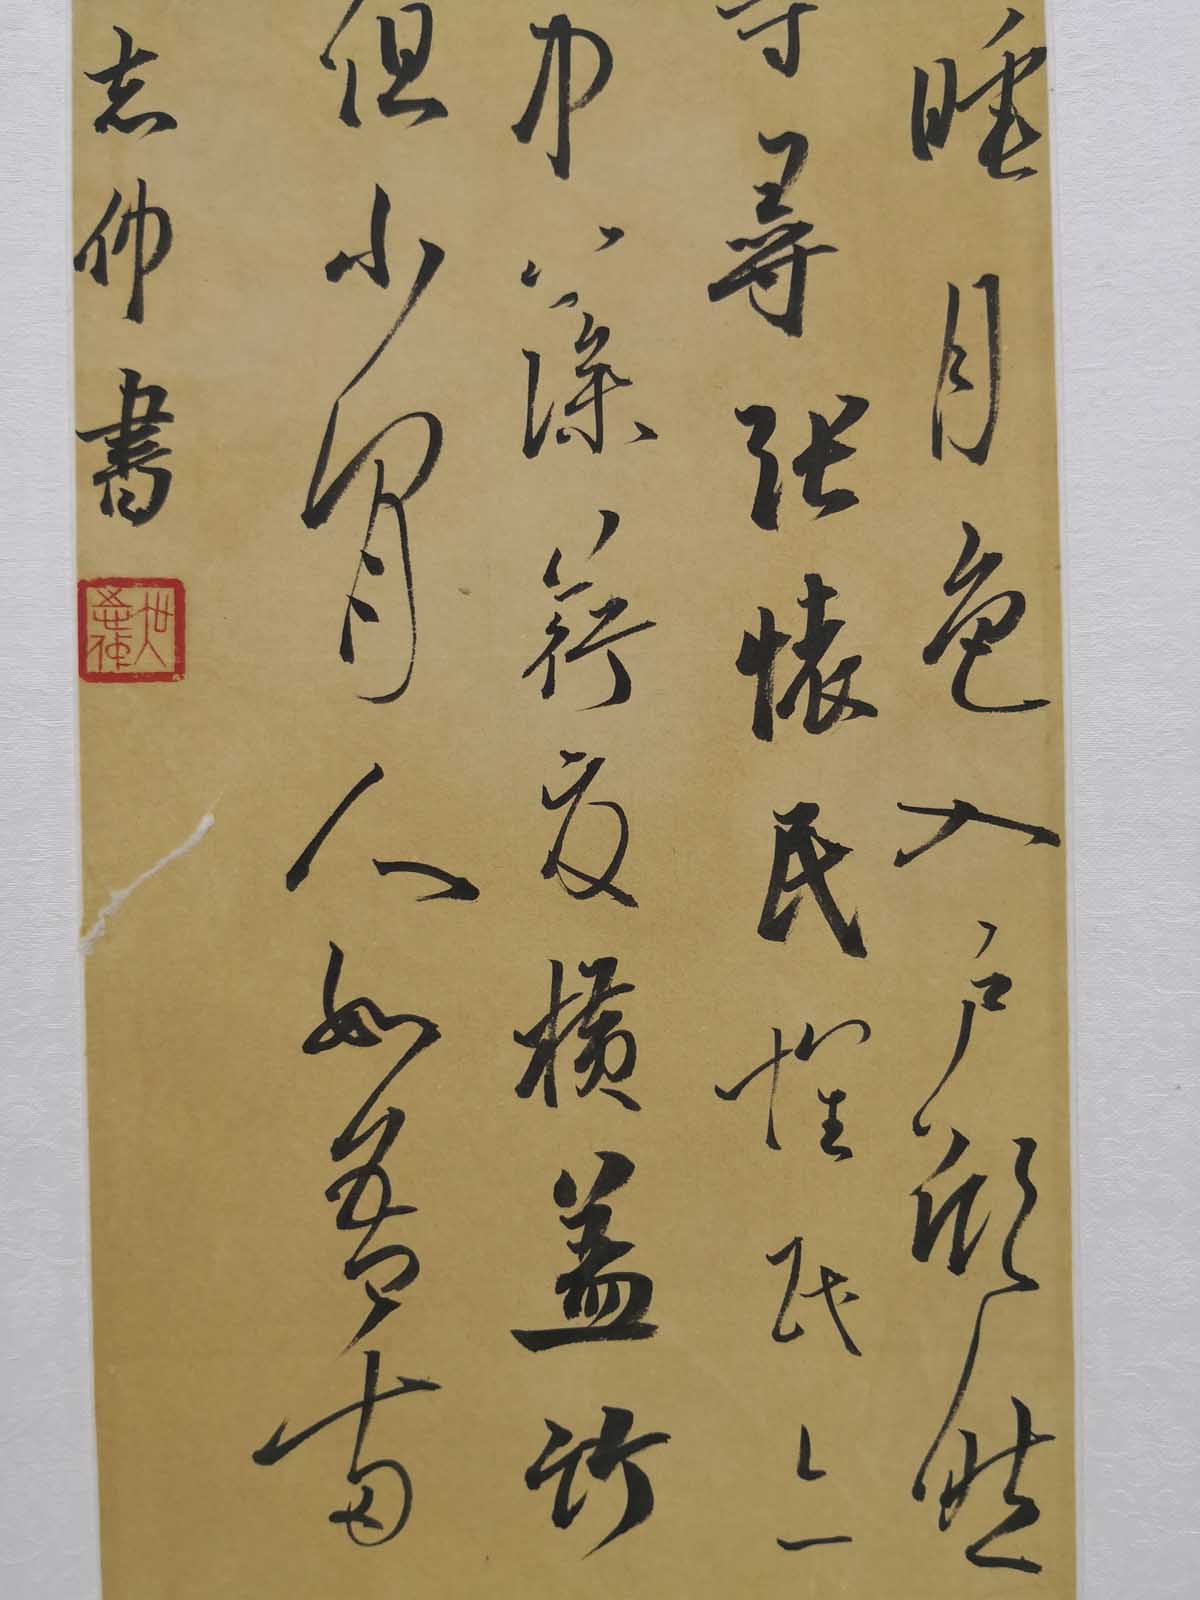 睡月色入户欣然
寺尋張懷民懷民亦
中藻荇交橫蓋竹
但少閒人如吾兩
志仲書